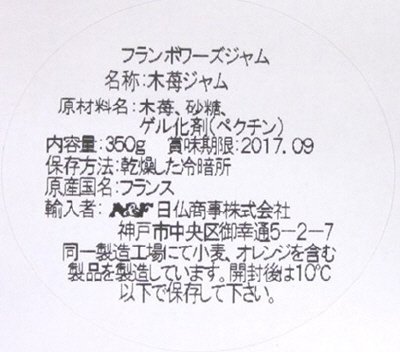 フランボワーズジャム
名称:木苺ジャム
原材料名:木苺、砂糖、
ゲル化剤(ペクチン)
内容量:350g 賞味期限:2017.09
保存方法:乾燥した冷暗所
原産国名:フランス
輸入者: 日仏商事株式会社
神戸市中央区御幸通5-2-7
同一製造工場にて小麦、オレンジを含む
製品を製造しています。開封後は10℃
以下で保存して下さい。